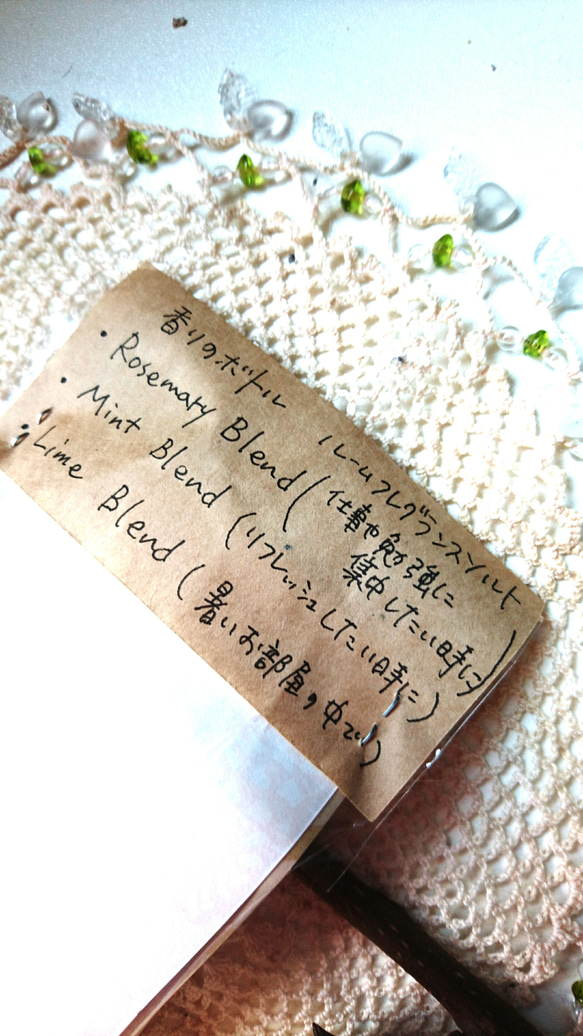 香りのボトル ルームフレグランスソルト
・Rosemary Blend (仕事や勉強に
集中したい時に)
・Mint Blend (リフレッシュしたい時に)
・Lime Blend (暑いお部屋の中で)